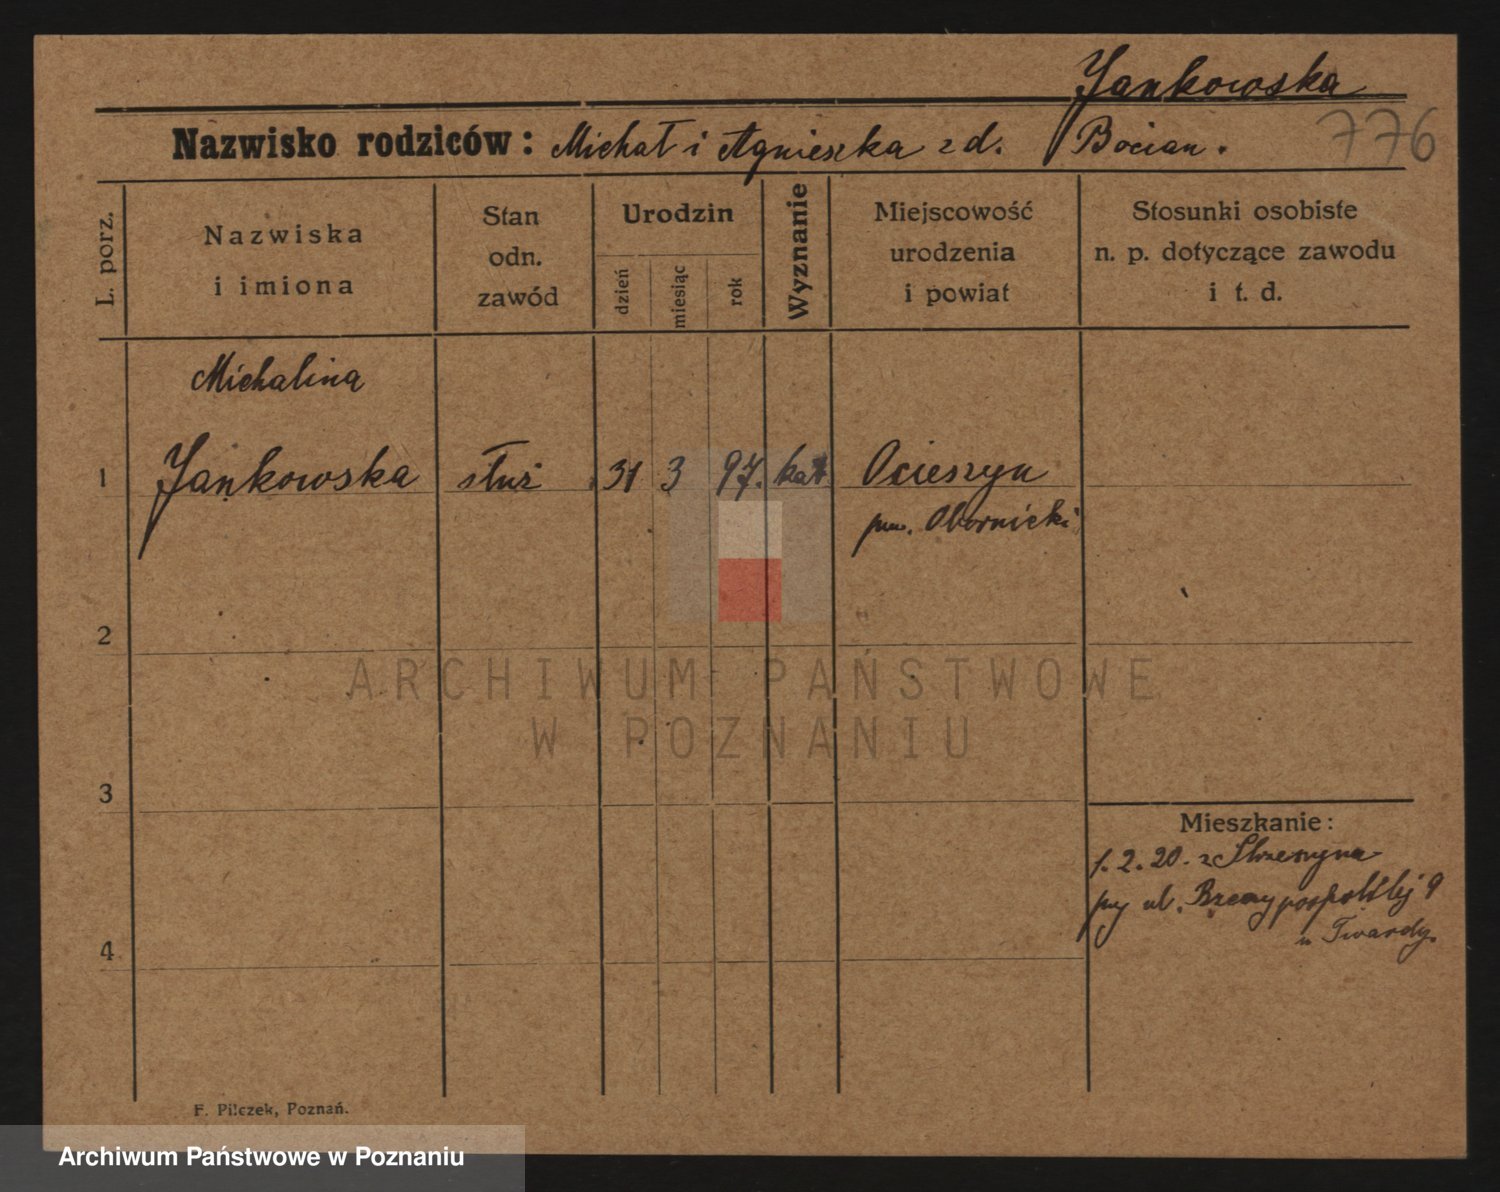 Jankowska
Nazwisko rodziców: Michał i Agnieszka z d. Bocian.
776
L. porz.
Nazwiska
i imiona
Stan
odn.
zawód
Urodzin
dzień
miesiąc
rok
Wyznanie
Miejscowość
urodzenia
i powiat
Stosunki osobiste
n. p. dotyczące zawodu
i t. d.
Michalina
1 Jankowska służ 31 3 97. kat. Ocieszyn
pow. Obornicki
2
ARCHIWUM PAŃSTWOWE
W POZNANIU
3
Mieszkanie:
1.2.20. z Strzeszyna
przy ul. Rzeczypospolitej 9
u Twardy.
4
F. Pilczek, Poznań.
Archiwum Państwowe w Poznaniu